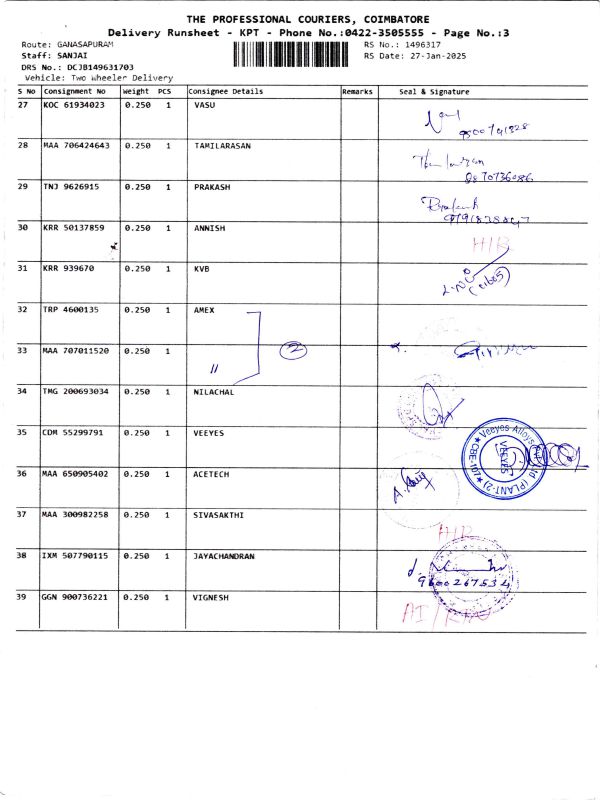 THE PROFESSIONAL COURIERS, COIMBATORE
Delivery Runsheet - KPT - Phone No.:0422-3505555 - Page No.:3
Route: GANASAPURAM RS No.: 1496317
Staff: SANJAI RS Date: 27-Jan-2025
DRS No.: DCJB149631703
Vehicle: Two Wheeler Delivery
S No Consignment No Weight PCS Consignee Details Remarks Seal & Signature
27 KOC 61934023 0.250 1 VASU
28 MAA 706424643 0.250 1 TAMILARASAN
9870736086
29 TNJ 9626915 0.250 1 PRAKASH
Prakash
30 KRR 50137859 0.250 1 ANNISH
H/B
31 KRR 939670 0.250 1 KVB
32 TRP 4600135 0.250 1 AMEX
33 MAA 707011520 0.250 1 "
2
34 TMG 200693034 0.250 1 NILACHAL
35 CDM 55299791 0.250 1 VEEYES
Veeyes Alloys (P) Ltd (PLANT-2) ★ CBE-107 ★
VEEYES
36 MAA 650905402 0.250 1 ACETECH
37 MAA 300982258 0.250 1 SIVASAKTHI
H/B
38 IXM 507790115 0.250 1 JAYACHANDRAN
9600267534
39 GGN 900736221 0.250 1 VIGNESH